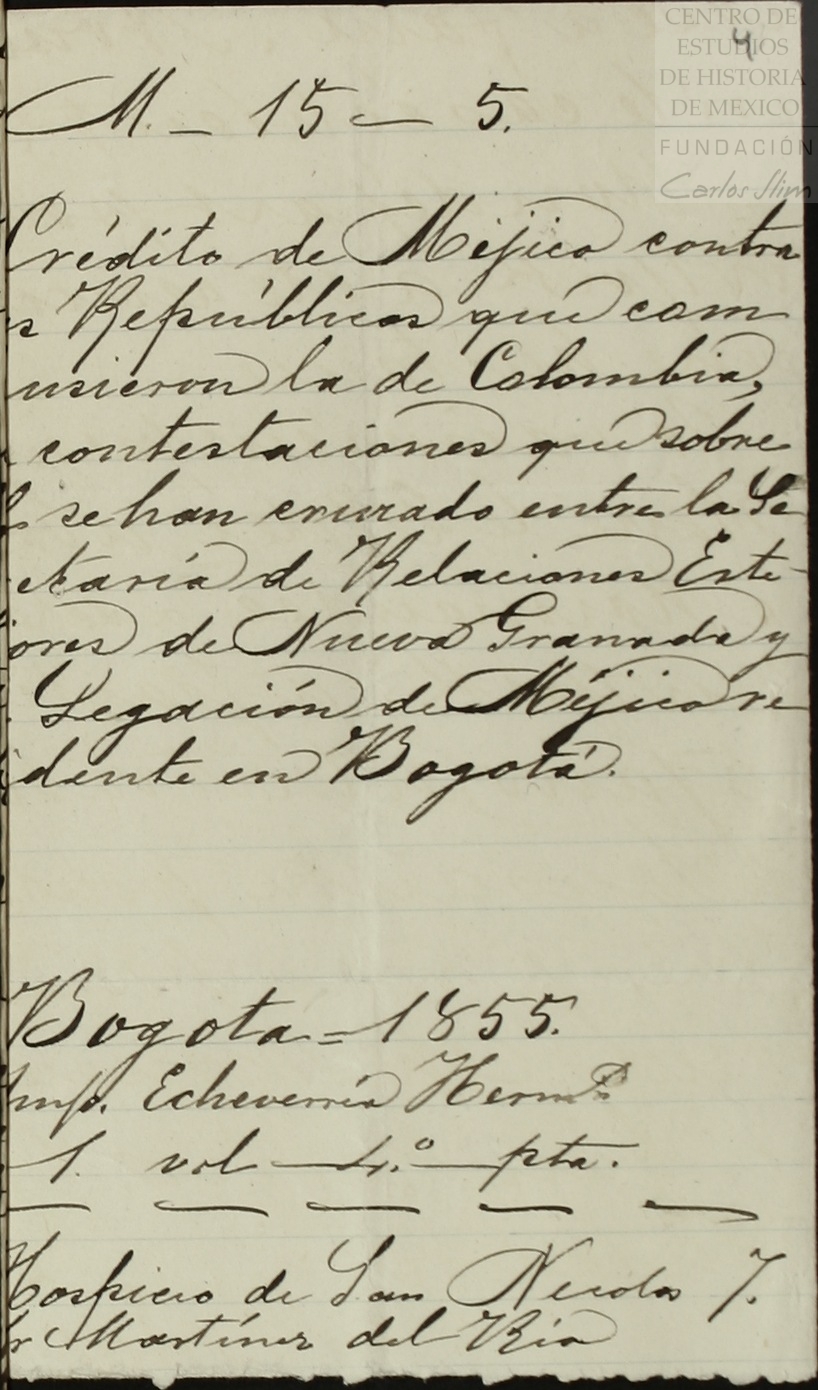 CENTRO DE
ESTUDIOS
DE HISTORIA
DE MEXICO
FUNDACIÓN
Carlos Slim
4
M. - 15 - 5.
Crédito de Méjico contra
s Repúblicas que com
usieron la de Colombia,
contestaciones que sobre
se han cruzado entre la Se
etaría de Relaciones Este-
iores de Nueva Granada y
Legación de Méjico re
idente en Bogotá.
Bogota = 1855.
Imp. Echeverría Herm.s
1. vol - 4.º - pta.
Hospicio de San Nicolas 7.
r Martínez del Rio